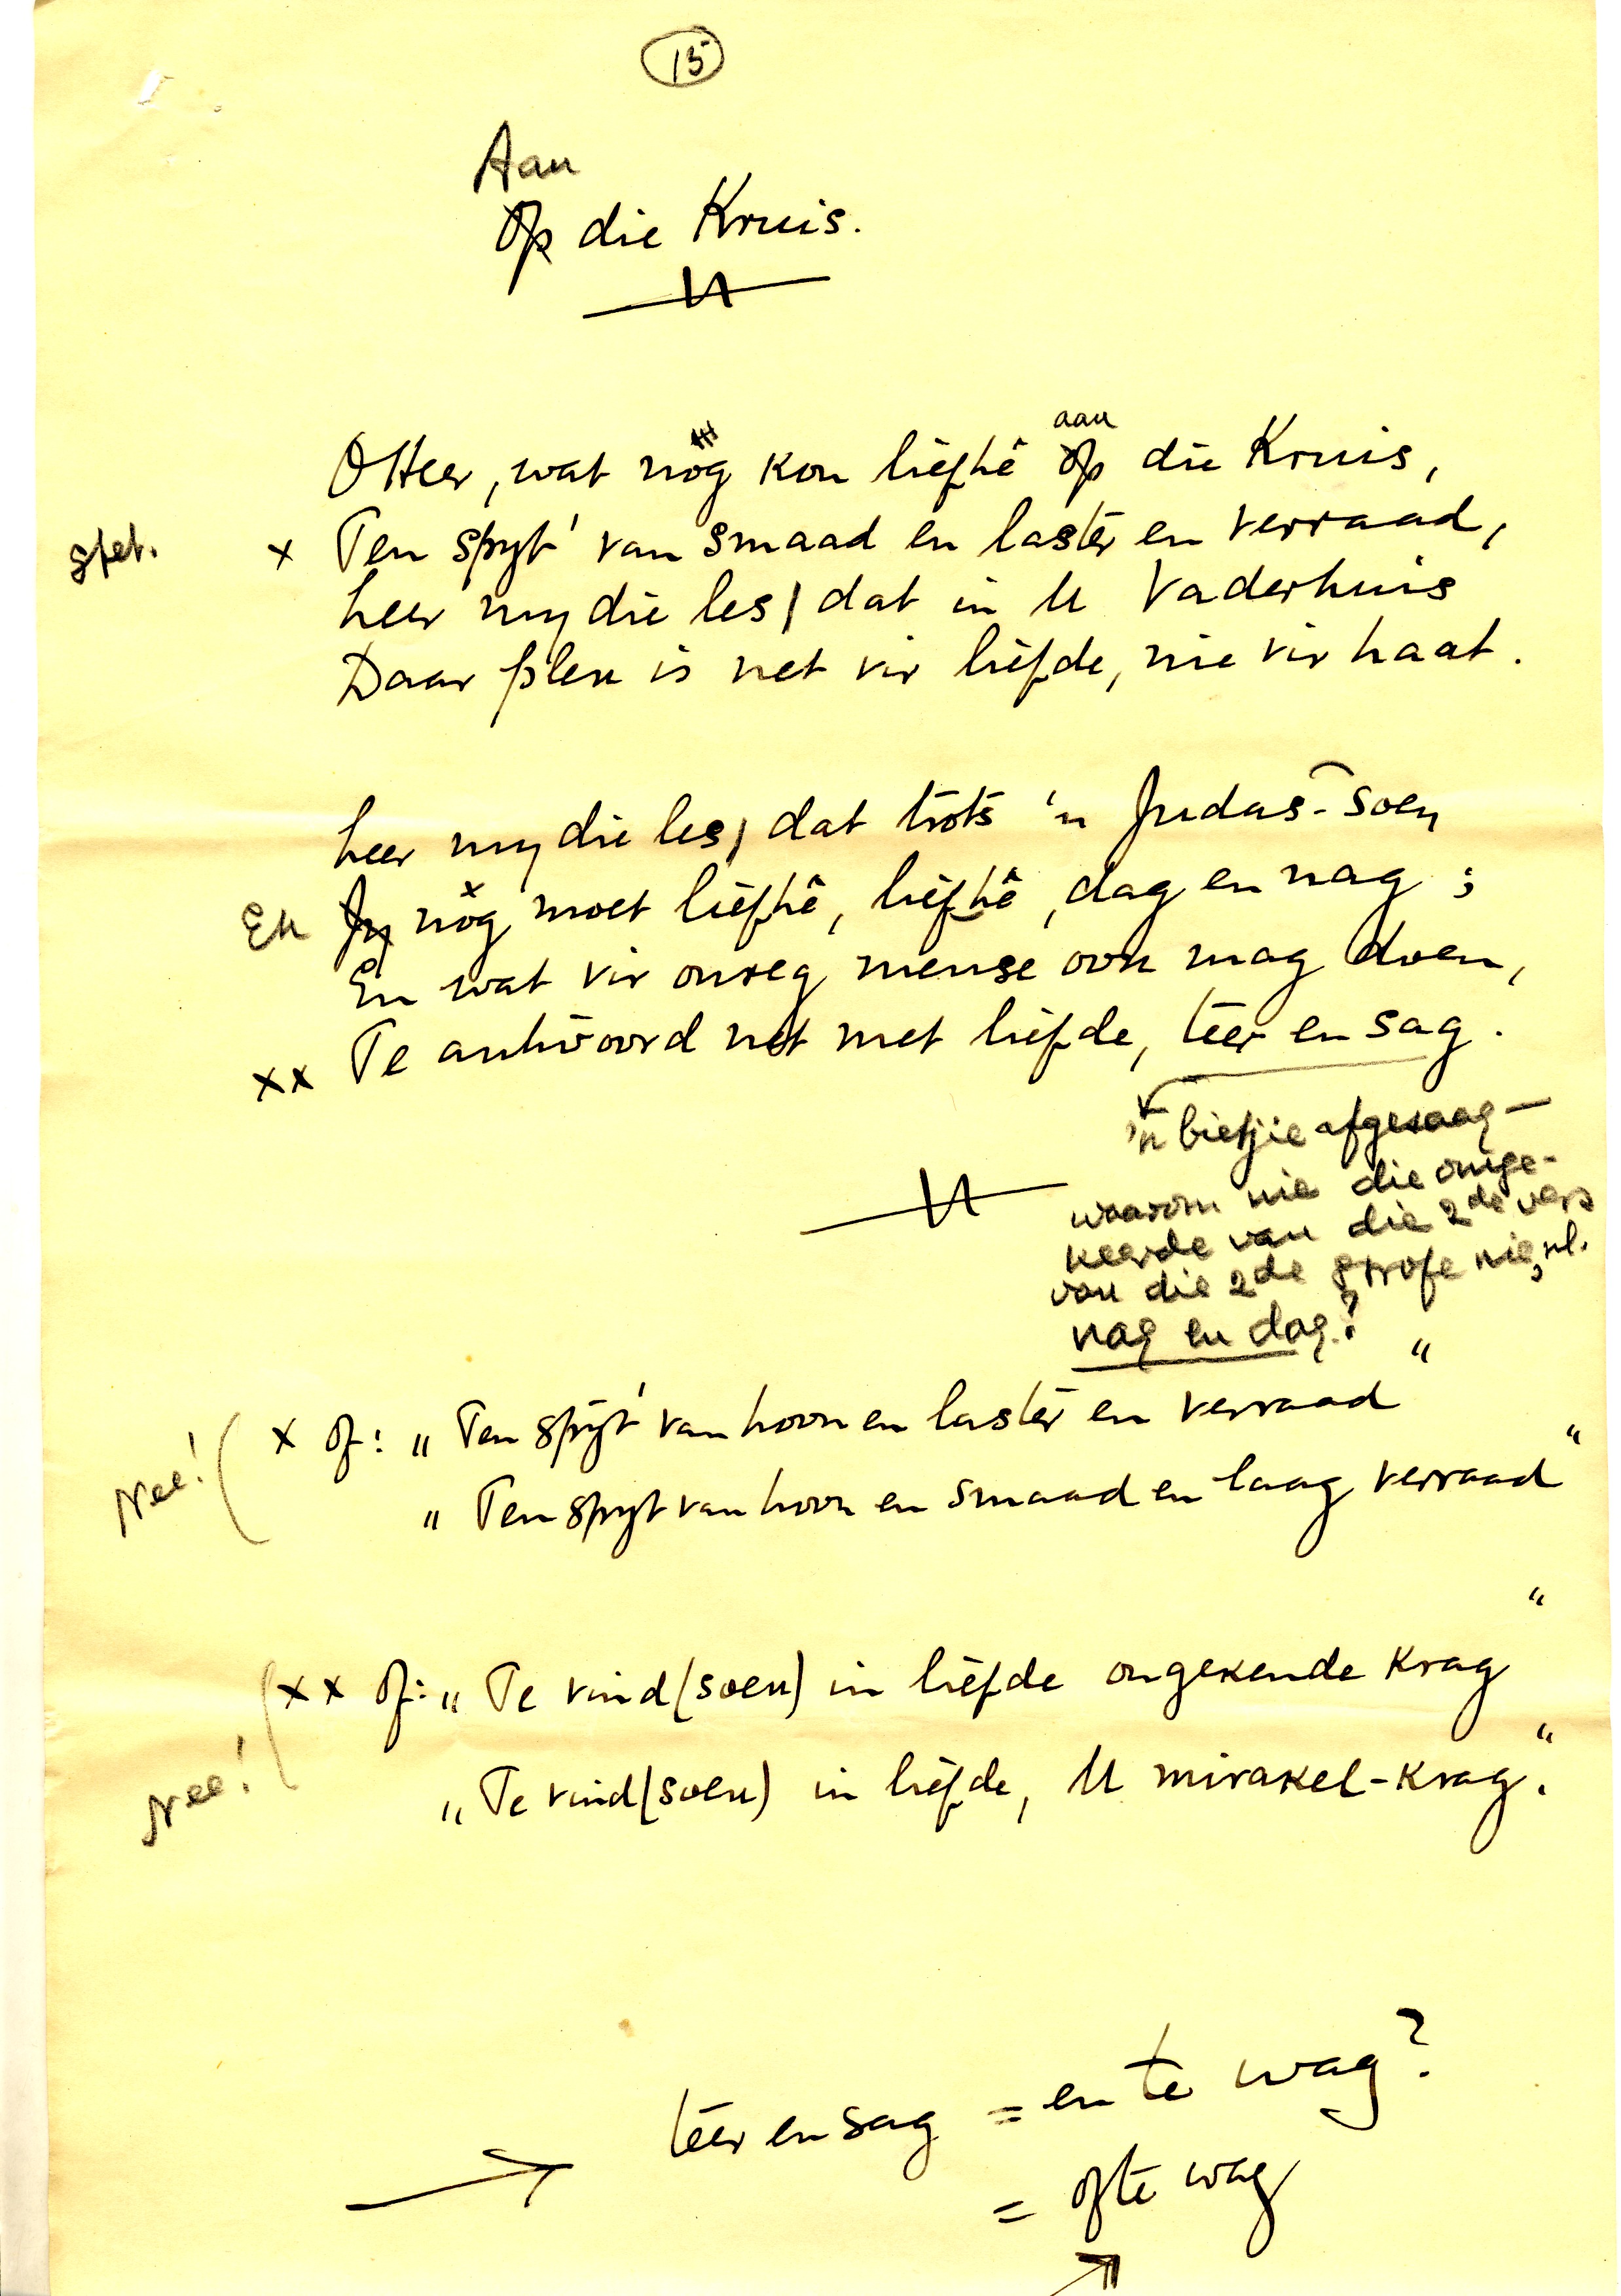 15
Aan
Op die Kruis.
O Heer, wat nòg kon liefhê op die Kruis,
aan
stet.
x Ten spyt' van smaad en laster en verraad,
Leer my die les, dat in U Vaderhuis
Daar plek is net vir liefde, nie vir haat.
Leer my die les, dat trots 'n Judas-soen
Ek nòg moet liefhê, liefhê, dag en nag;
En wat vir onreg mense ook mag doen,
xx Te antwoord net met liefde, teer en sag.
'n bietjie afgesaag —
waarom nie die omge-
keerde van die 2de vers
van die 2de strofe nie, nl.
nag en dag?
Nee! ( x of: „Ten spyt' van hoon en laster en verraad“
„Ten spyt van hoon en smaad en laag verraad“
Nee! ( xx of: „Te vind (soek) in liefde ongekende krag“
„Te vind (soek) in liefde, U mirakel-krag.“
teer en sag = en te wag?
= of te wag